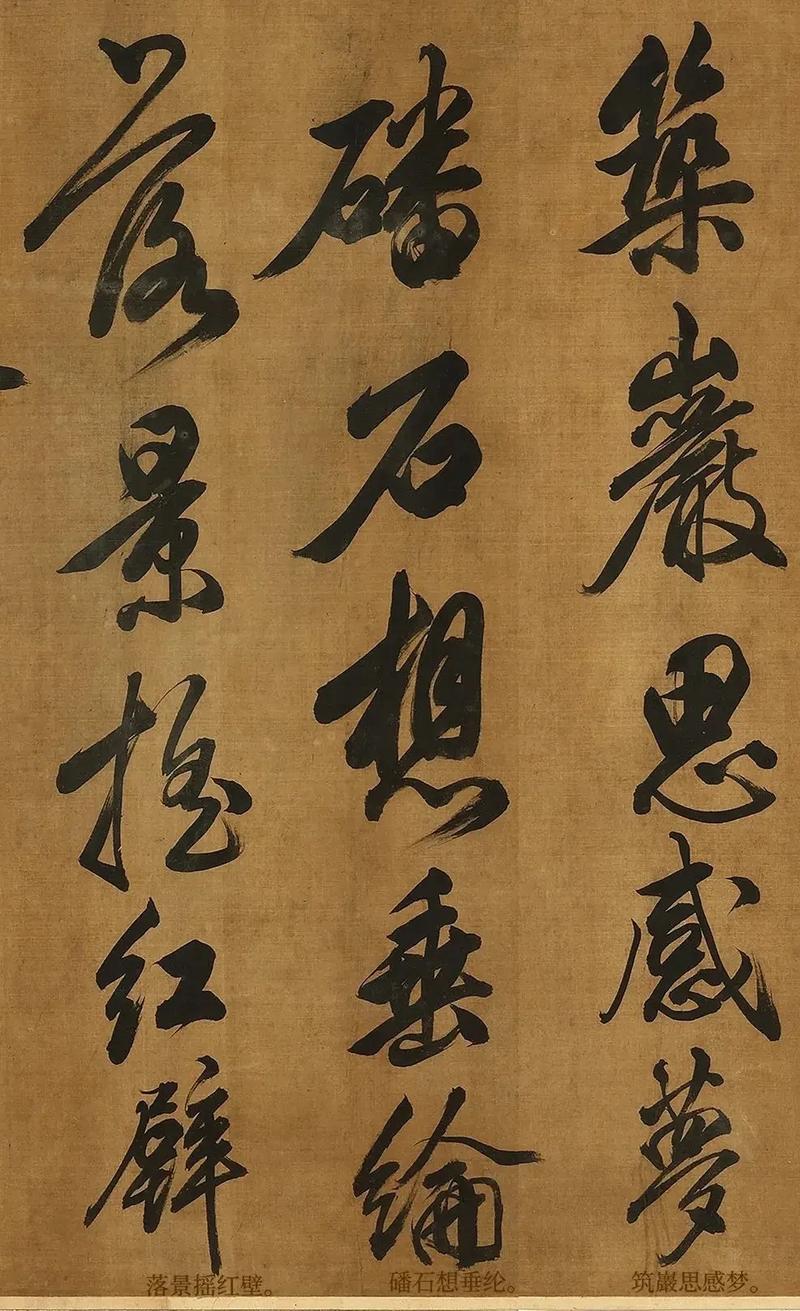 築巖思感夢
磻石想垂綸
落景搖紅壁
筑巖思感梦。
磻石想垂纶。
落景摇红壁。